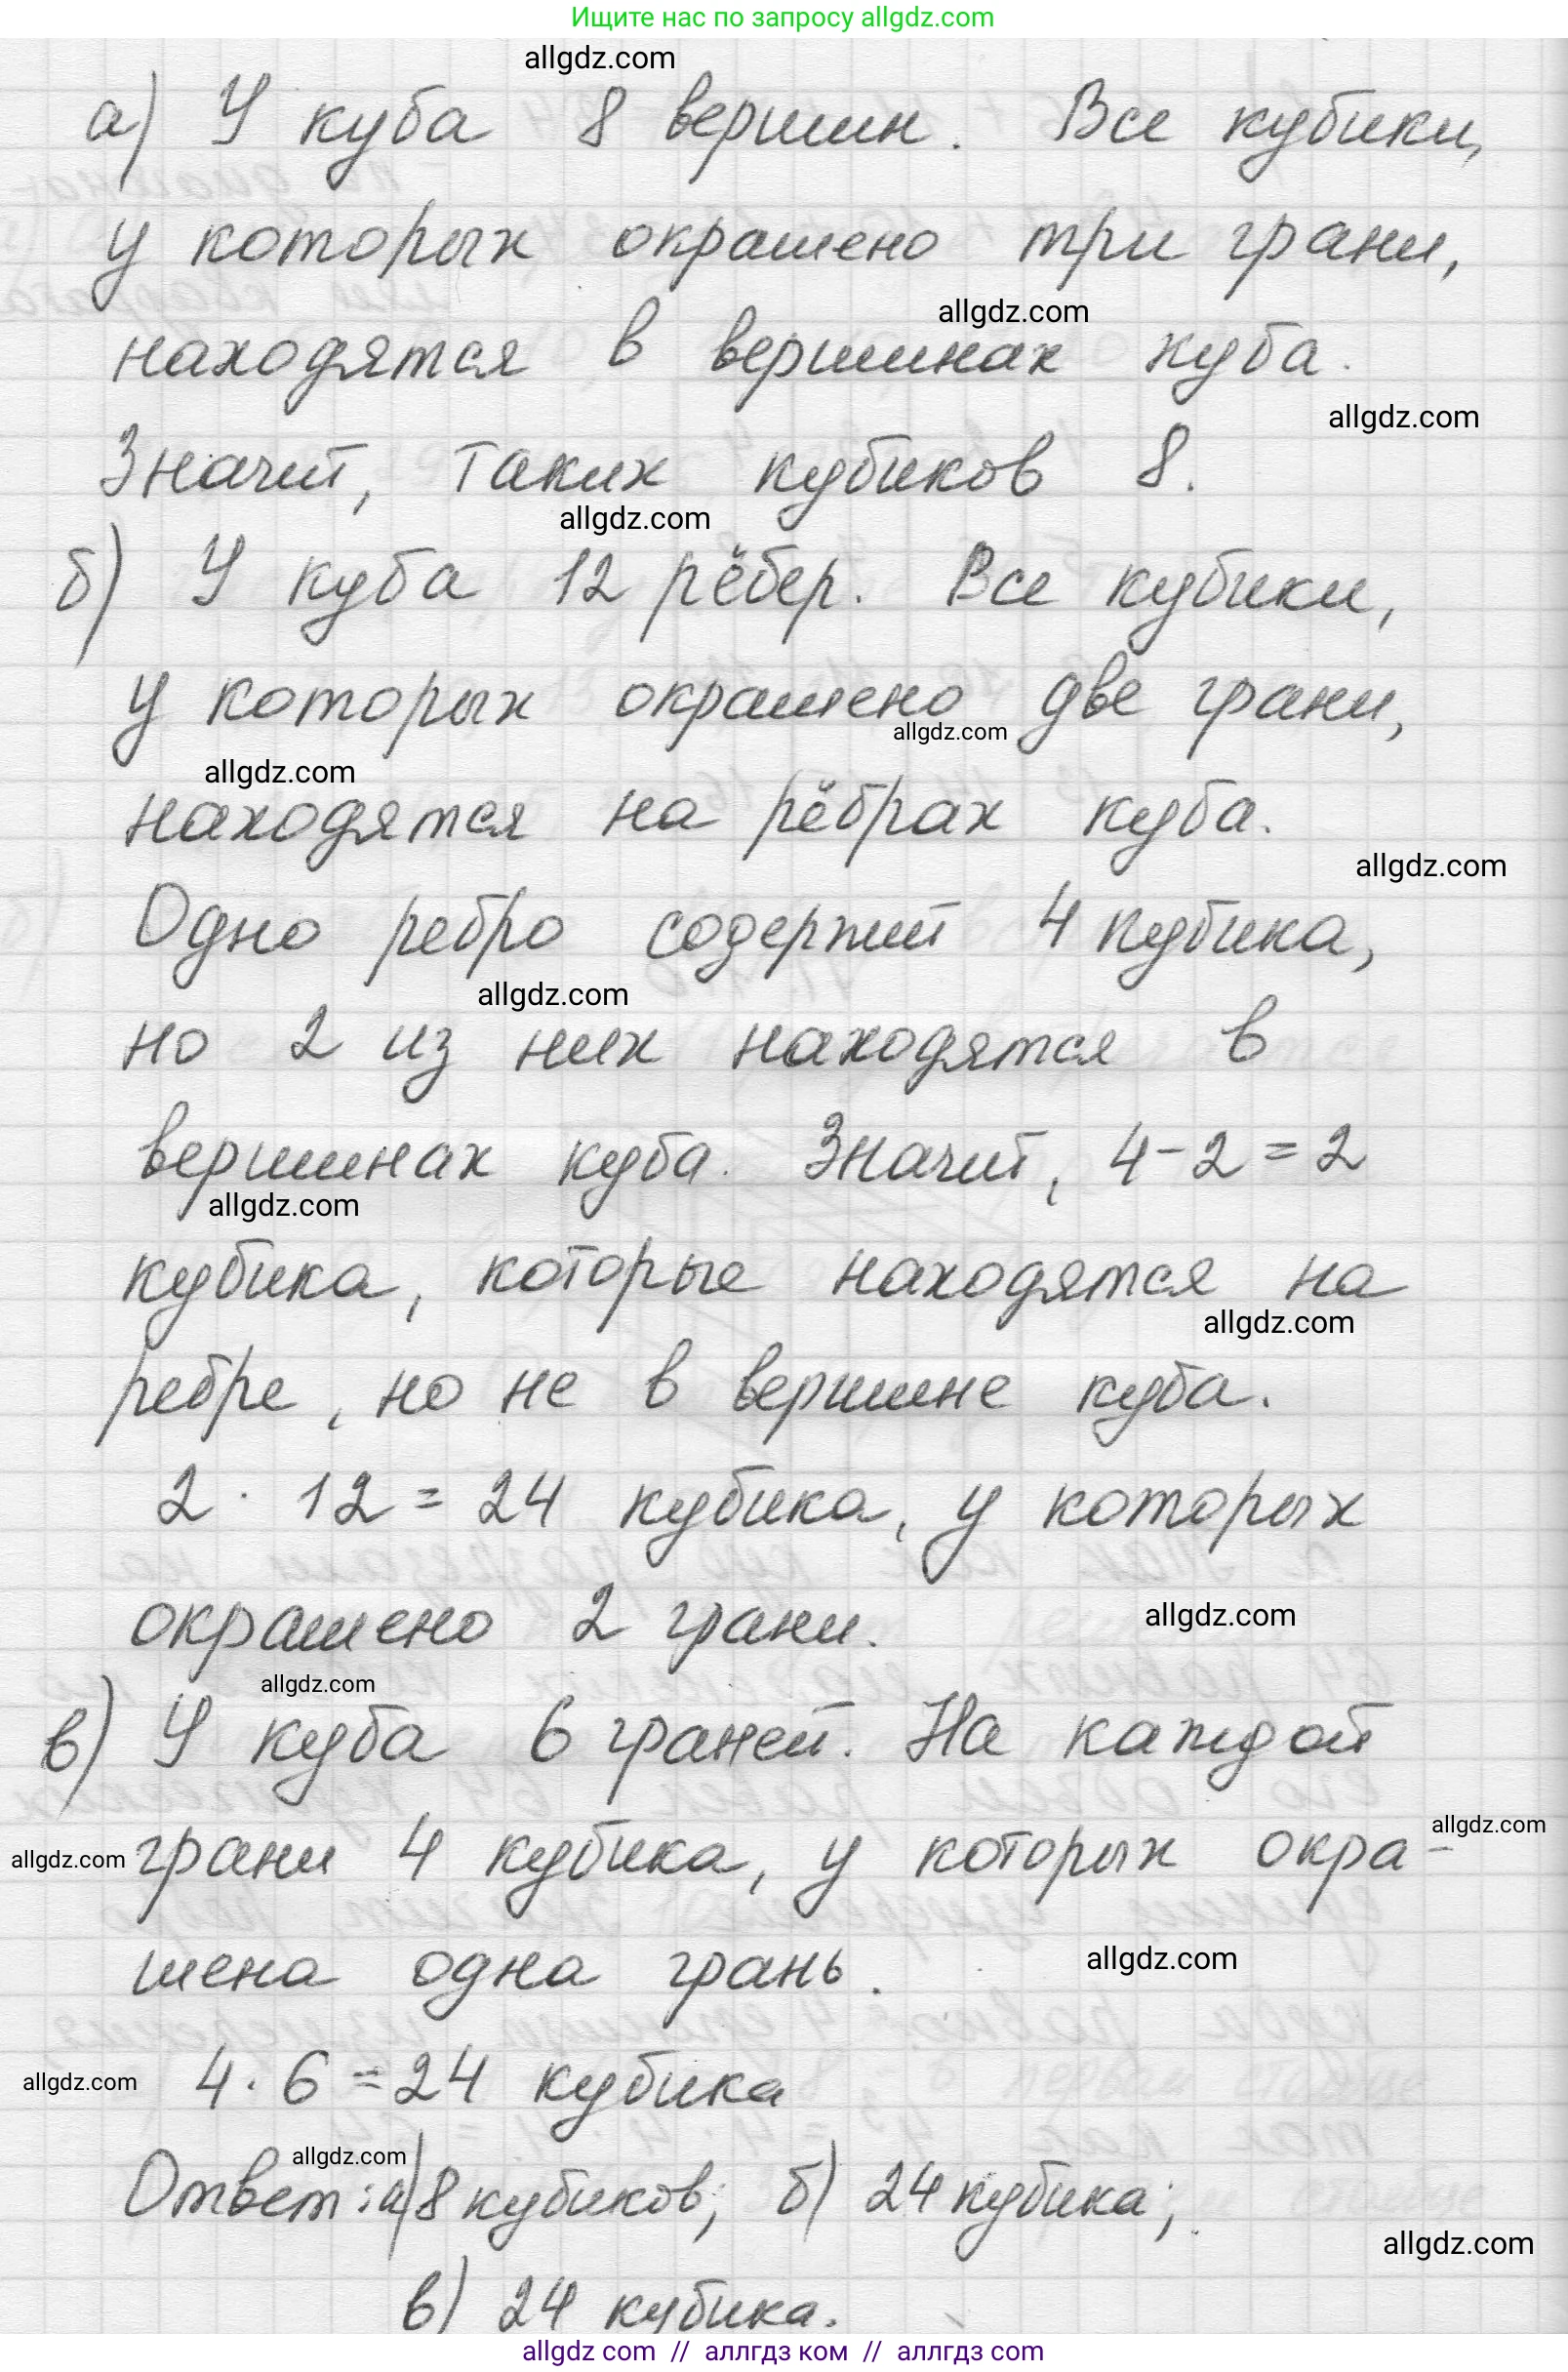 Ищите нас по запросу allgdz.com
allgdz.com
а) У куба 8 вершин. Все кубики,
у которых окрашено три грани,
allgdz.com
находятся в вершинах куба.
allgdz.com
Значит, таких кубиков 8.
allgdz.com
б) У куба 12 рёбер. Все кубики,
у которых окрашено две грани,
allgdz.com
allgdz.com
находятся на рёбрах куба.
allgdz.com
Одно ребро содержит 4 кубика,
allgdz.com
но 2 из них находятся в
вершинах куба. Значит, 4-2=2
allgdz.com
кубика, которые находятся на
allgdz.com
ребре, но не в вершине куба.
2 · 12 = 24 кубика, у которых
окрашено 2 грани.
allgdz.com
allgdz.com
в) У куба 6 граней. На каждой
allgdz.com
allgdz.com
грани 4 кубика, у которых окра-
шена одна грань.
allgdz.com
allgdz.com
4 · 6 = 24 кубика
allgdz.com
Ответ: а) 8 кубиков; б) 24 кубика;
allgdz.com
в) 24 кубика.
allgdz.com // аллгдз ком // аллгдз com